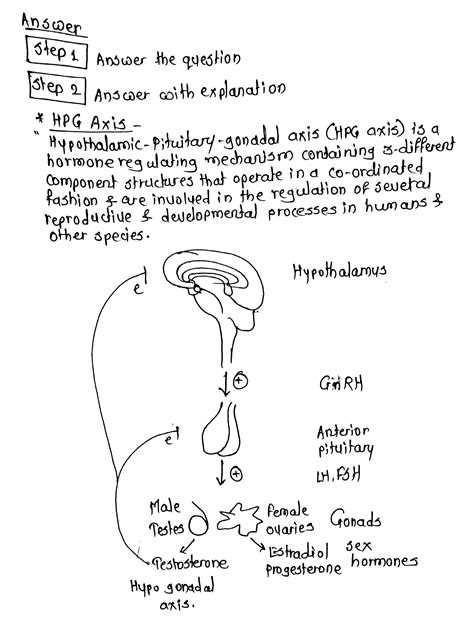 Answer
Step 1 Answer the question
Step 2 Answer with explanation
* HPG Axis -
"Hypothalamic-pituitary-gonadal axis (HPG axis) is a
hormone regulating mechanism containing 3-different
component structures that operate in a co-ordinated
fashion & are involved in the regulation of several
reproductive & developmental processes in humans &
other species.
Hypothalamus
e
+
GnRH
Anterior
pituitary
e
+
LH, FSH
Male
Testes
Female
ovaries
Gonads
Testosterone
Estradiol
progesterone
sex
hormones
Hypo gonadal
axis.